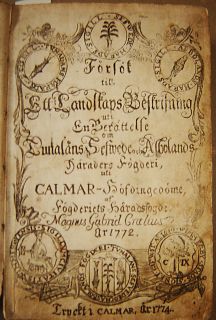 Försök
till
Ett Landskaps Beskrifning
uti
En Berättelse
om
Tunaläns, Sefwede och Aspelands
Häraders Fögderi,
uti
CALMAR-Höfdingedöme,
af
Fögderiets Häradsfogde
Magnus Gabriel Crælius.
år 1772.
Tryckt i CALMAR, år 1774.